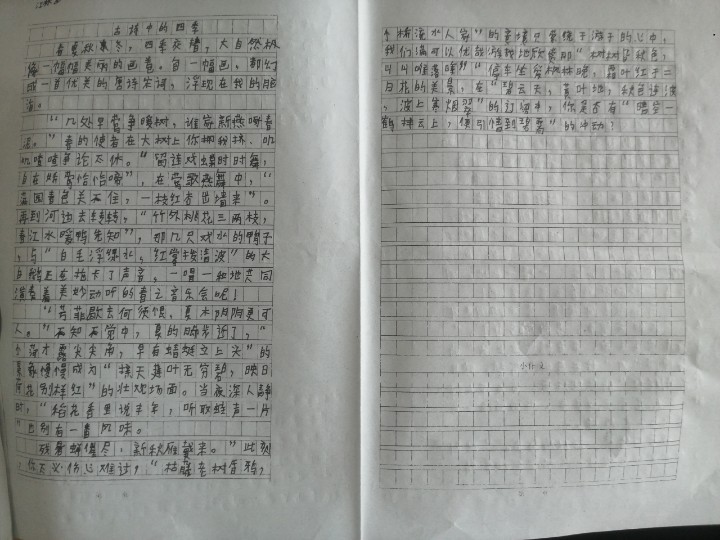 古诗中的四季
春夏秋寒冬，四季交替，大自然就
像一幅幅美丽的色卷。每一幅色，都幻
成一首优美的唐诗宋词，浮现在我的脑
海。
“几处早莺争暖树，谁家新燕啄春
泥。”春的使者在大树上你拥我挤，叽
叽喳喳争论不休。“留连戏蝶时时舞，
自在娇莺恰恰啼”，在莺歌燕舞中，“
满园春色关不住，一枝红杏出墙来”。
再到河边去转转，“竹外桃花三两枝，
春江水暖鸭先知”，那几只戏水的鸭子
，与“白毛浮绿水，红掌拨清波”的大
白鹅正在拍卡了声音，一唱一和地共同
演奏着美妙动听的春之音乐会呢！
“芳菲歇去何须恨，夏木阴阴更可
人。”不知不觉中，夏的脚步近了，“
小荷才露尖尖角，早有蜻蜓立上头”的
景致慢慢成为“接天莲叶无穷碧，映日
荷花别样红”的壮观场面。当夜深人静
时，“稻花香里说丰年，听取蛙声一片
”也别有一番风味。
残暑蝉催尽，新秋雁戴来。”此刻
，你不必伤心难过，“枯藤老树昏鸦，
小桥流水人家”的意境只会傀于游子的心中，
我们满可以优哉游哉地欣赏那“树树皆秋色，
“停车坐爱枫林晚，霜叶红于二
月花的美景，在“碧云天，黄叶地，秋色连波
，波上寒烟翠”的江边中，你是否有“晴空一
鹤排云上，便引诗情到碧霄”的冲动？
小作文